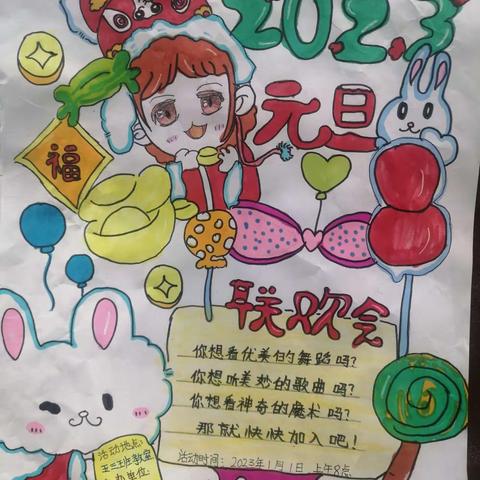 2023
元旦
福
联欢会
你想看优美的舞蹈吗?
你想听美妙的歌曲吗?
你想看神奇的魔术吗?
那就快快加入吧!
活动时间:2023年1月1日上午8点
活动地点:
五三班教室
办单位: